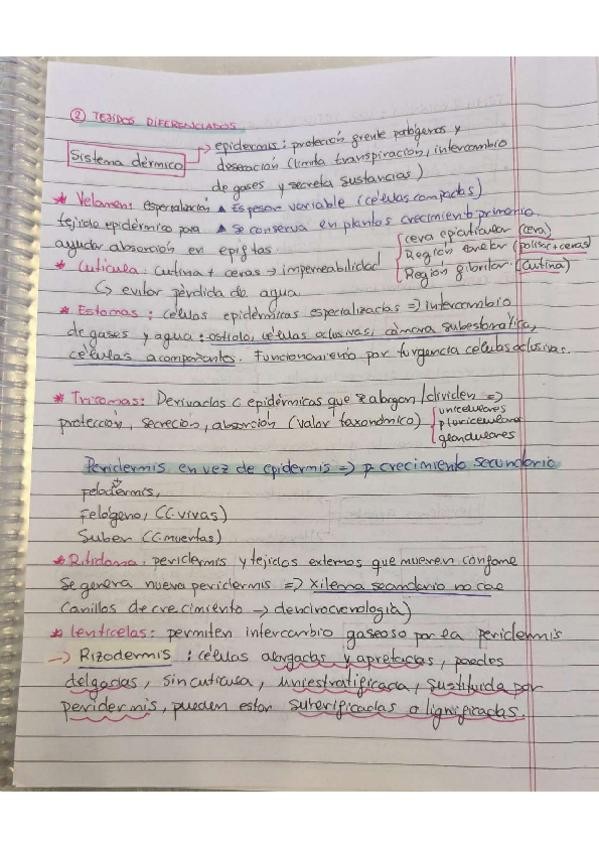 ② TEJIDOS DIFERENCIADOS
Sistema dérmico → epidermis: protección frente patógenos y
desecación (limita transpiración, intercambio
de gases y secreta sustancias)
* Velamen: especialización ▲ Espesor variable (células compactas)
tejido epidérmico para ▲ Se conserva en plantas crecimiento primario.
ayudar absorción en epífitas.
cera epicuticular (cera)
* Cutícula: cutina + ceras → impermeabilidad
Región (polisac+ceras)
Región fibrilar (cutina)
↳ evitar pérdida de agua
* Estomas: células epidérmicas especializadas ⇒ intercambio
de gases y agua: ostiolo, células oclusivas, cámara subestomática,
células acompañantes. Funcionamiento por turgencia células oclusivas.
* Tricomas: Derivados C epidérmicas que se alargan/dividen ⇒
protección, secreción, absorción (valor taxonómico)
unicelulares
pluricelulares
glandulares
Peridermis en vez de epidermis ⇒ p crecimiento secundario
felodermis,
Felógeno, (C.vivas)
Suber (C.muertas)
* Ritidoma: peridermis y tejidos externos que mueren conforme
se genera nueva peridermis ⇒ xilema secundario no cae
(anillos de crecimiento → dendrocronología)
* lenticelas: permiten intercambio gaseoso por la peridermis
→ Rizodermis: células alargadas y apretadas, paredes
delgadas, sin cutícula, uniestratificada, sustituida por
peridermis, pueden estar suberificadas o lignificadas.